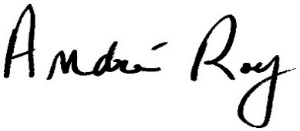 André Roy